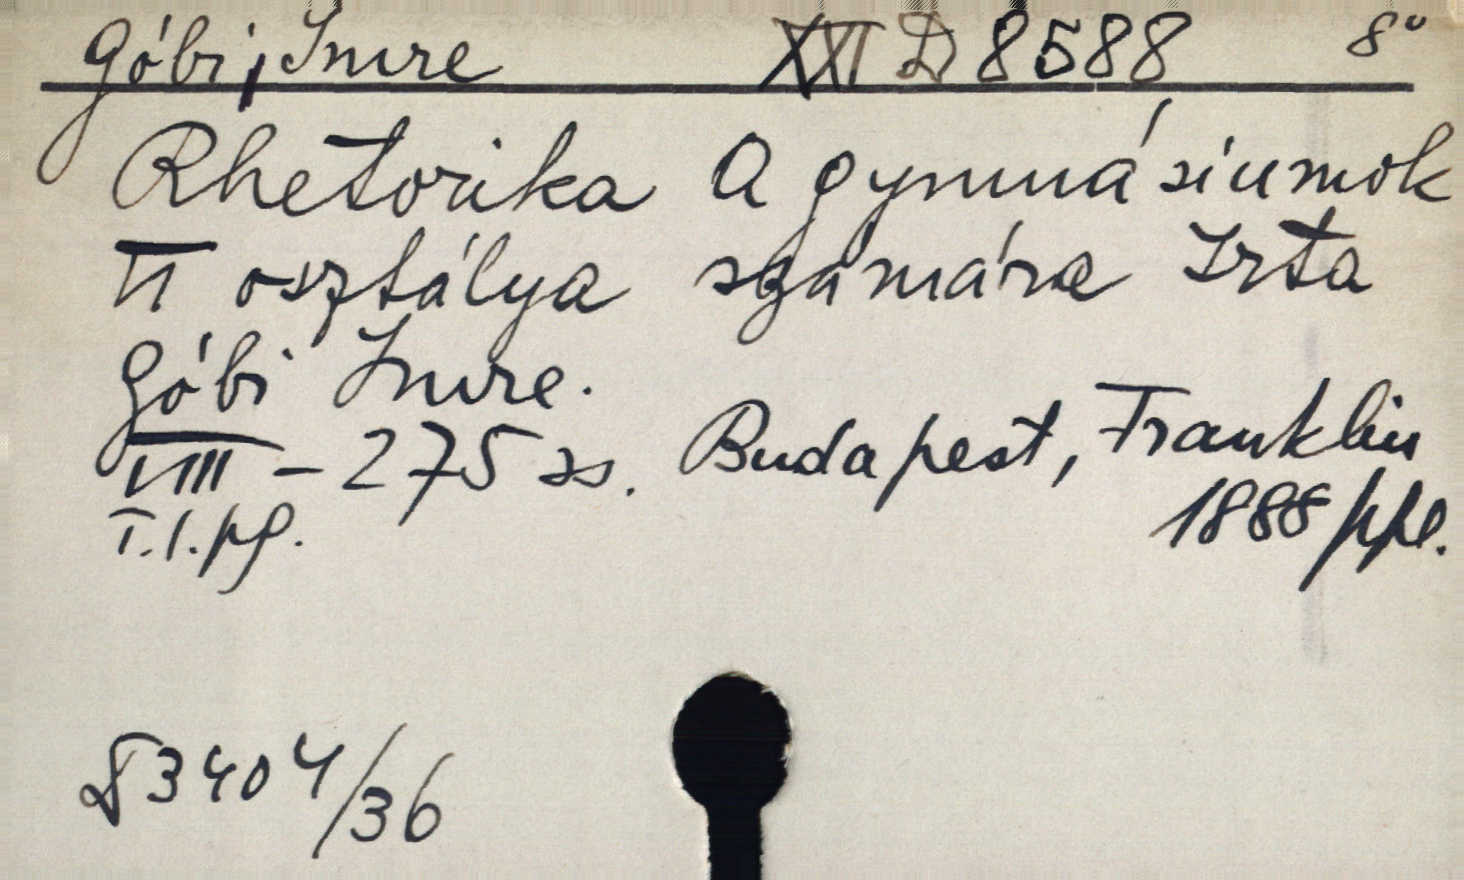 Góbi, Imre XXI D 8588 8°
Rhetorika A gymnásiumok
VI osztálya számára Irta
Góbi Imre.
VIII - 275 ss. Budapest, Franklin
T.l.pg. 1888 ppl.
3404/36